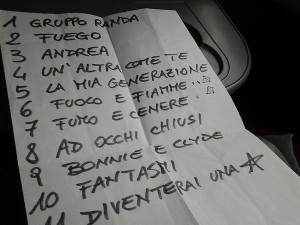 1 GRUPPO RANDA
2 FUEGO
3 ANDREA
4 UN'ALTRA COME TE
5 LA MIA GENERAZIONE
6 FUOCO E FIAMME..
7 FUMO E CENERE.
8 AD OCCHI CHIUSI
9 BONNIE E CLYDE
10 FANTASMI
11 DIVENTERAI UNA